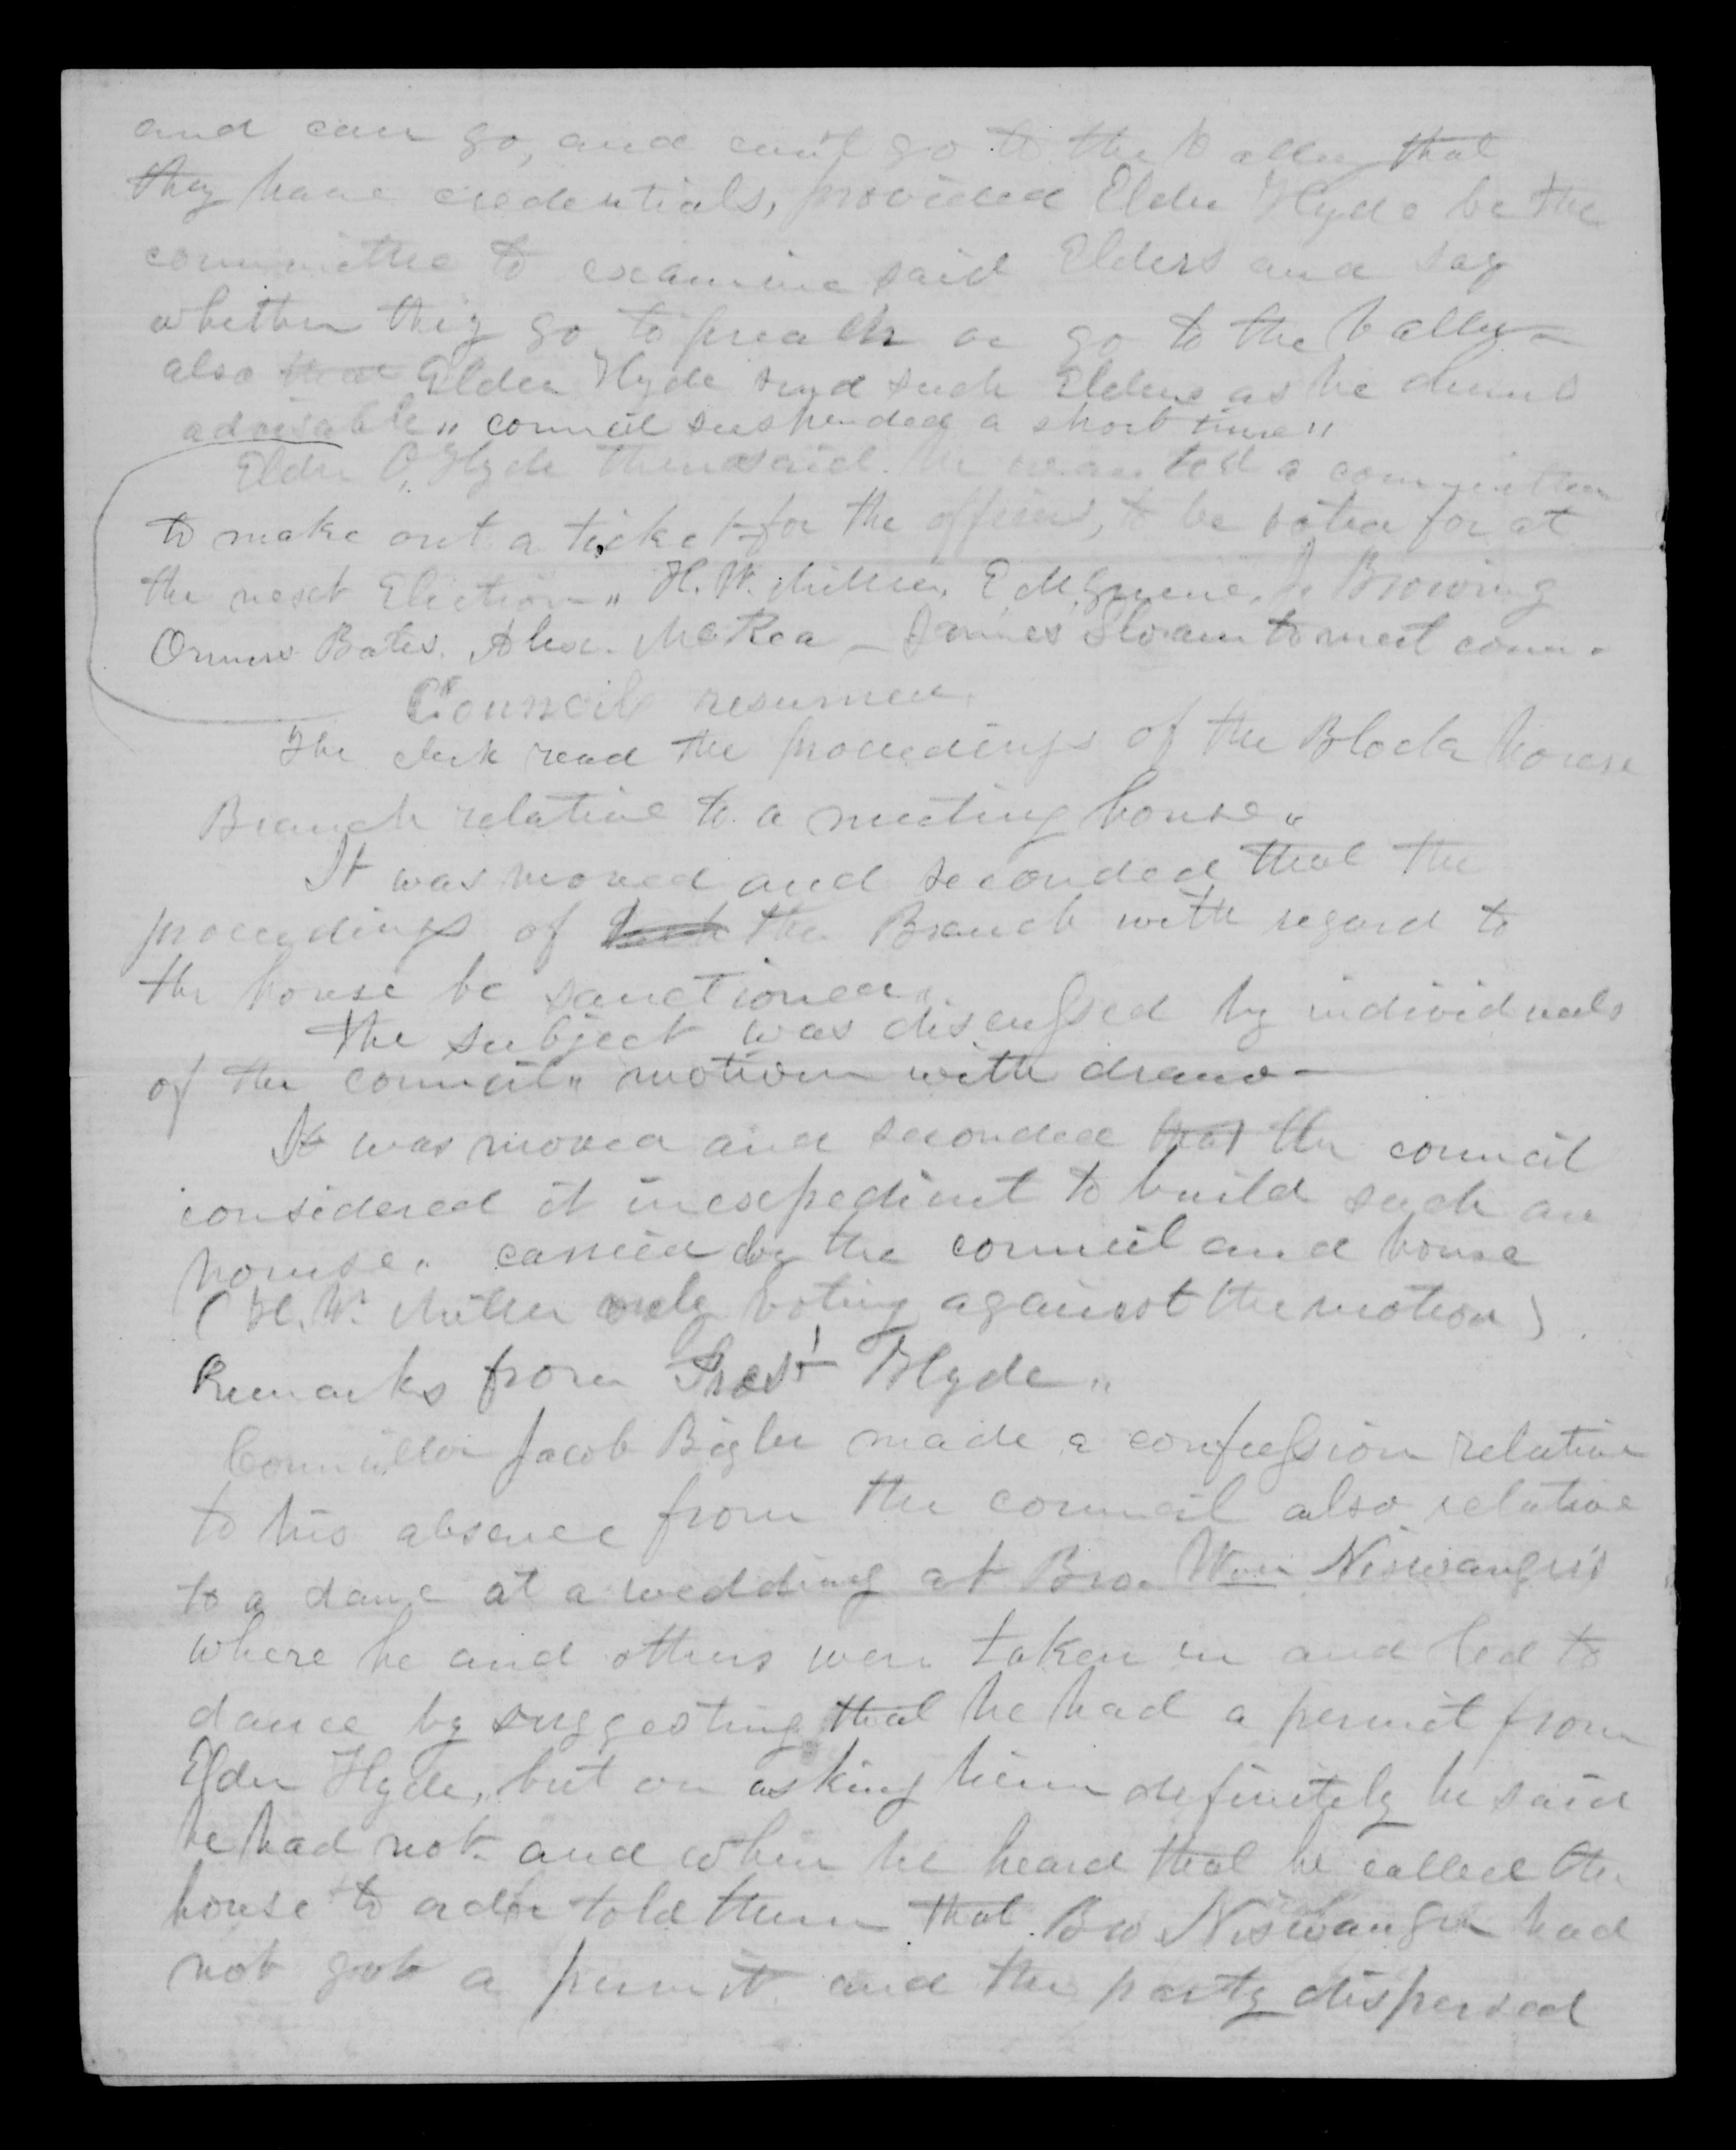 and can go, and can't go to the Valley that
they have credentials, provided Elder Hyde be the
committee to examine said Elders and say
whether they go to preach or go to the Valley -
also that Elder Hyde send such Elders as he deems
advisable,, council suspended a short time"
Elder O. Hyde then said. he wanted a committee
to make out a ticket for the officers, to be voted for at
the next Election,, H. W. Miller, E. M. Greene, J. Browing
Ormus Bates. Alex. McRea - James Sloan to meet comm.
Council resumed.
The clerk read the proceedings of the Block house
Branch relative to a meeting house,,
It was moved and seconded that the
proceedings of the Branch with regard to
the house be sanctioned,,
the subject was discussed by individuals
of the council,, motion with drawn -
It was moved and seconded that the council
considered it inexpedient to build such an
house,, carried by the council and house
(H. W. Miller only voting against the motion)
Remarks from Prest Hyde,,
Councillor Jacob Bigler made a confession relative
to his absence from the council also relative
to a dance at a wedding at Bro. Wm Niswanger's
where he and others were taken in and led to
dance by suggesting that he had a permit from
Elder Hyde, but on asking him definitely he said
he had not and when he heard that he called the
house to order told them that Bro Niswanger had
not got a permit and the party dispersed